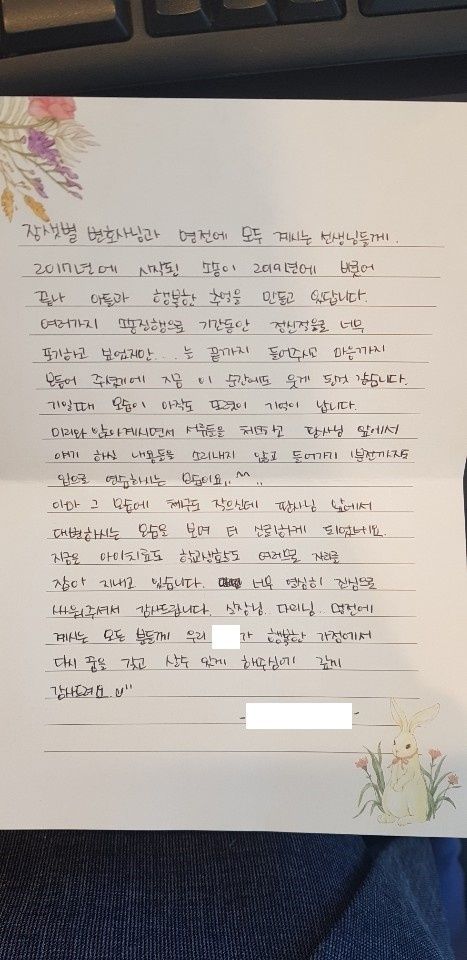 장샛별 변호사님과 명전에 모두 계시는 선생님들께.
2017년에 시작된 소송이 2019년에 비로소
끝나 아들과 행복한 추억을 만들고 있답니다.
여러가지 소송진행으로 기간동안 정신적을로 너무
포기하고 싶었지만... 는 끝까지 들어주시고 마음까지
보듬어 주셨기에 지금 이 순간에도 웃게 된것 같습니다.
기일때 모습이 아직도 또렷이 기억이 납니다.
미리와 앉아계시면서 서류들을 체크하고 판사님 앞에서
얘기 하실 내용들을 소리내지 않고 들어가기 1분전까지도
입으로 연습하시는 모습이요,, ^^ ,,
아마 그 모습에 체구도 작으신데 판사님 앞에서
대변하시는 모습을 보며 더 신뢰하게 되었네요.
지금은 아이치료도 학교생활도 여러모로 자리를
잡아 지내고 있습니다. 너무 열심히 진심으로
싸워주셔서 감사드립니다. 실장님. 다미님. 명전에
계시는 모든 분들께 우리 가 행복한 가정에서
다시 꿈을 갖고 살수 있게 해주심에 깊이
감사드려요